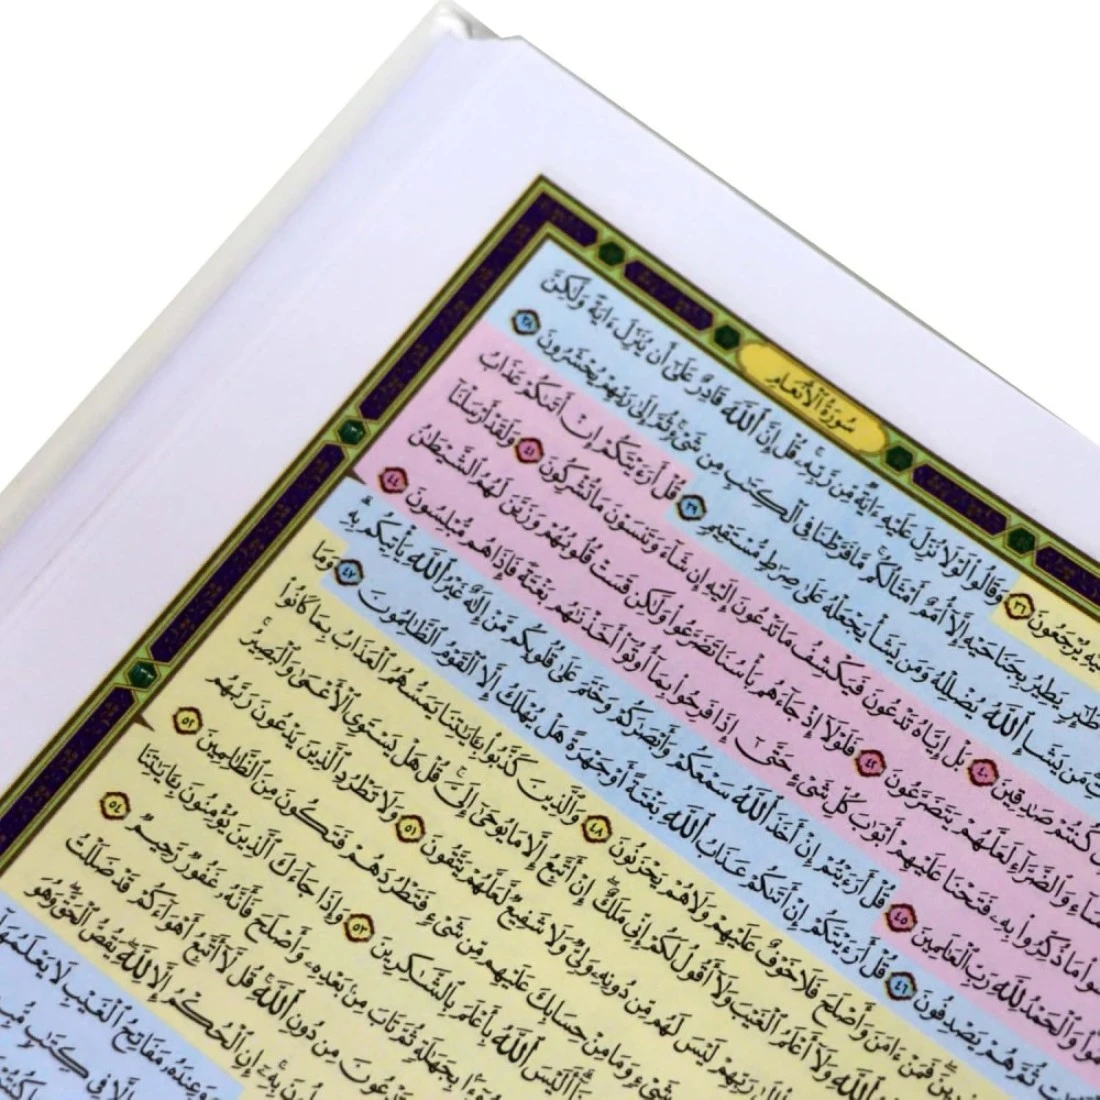 سُورَةُ الأَنْعَامِ
يُرْجَعُونَ ٣٦ وَقَالُوا۟ لَوْلَا نُزِّلَ عَلَيْهِ ءَايَةٌ مِّن رَّبِّهِۦ ۚ قُلْ إِنَّ ٱللَّهَ قَادِرٌ عَلَىٰٓ أَن يُنَزِّلَ ءَايَةً وَلَٰكِنَّ
يَطِيرُ بِجَنَاحَيْهِ إِلَّآ أُمَمٌ أَمْثَالُكُم ۚ مَّا فَرَّطْنَا فِى ٱلْكِتَٰبِ مِن شَىْءٍ ۚ ثُمَّ إِلَىٰ رَبِّهِمْ يُحْشَرُونَ ٣٨
مَن يَشَإِ ٱللَّهُ يُضْلِلْهُ وَمَن يَشَأْ يَجْعَلْهُ عَلَىٰ صِرَٰطٍ مُّسْتَقِيمٍ ٣٩ قُلْ أَرَءَيْتَكُمْ إِنْ أَتَىٰكُمْ عَذَابُ
كُنتُمْ صَٰدِقِينَ ٤٠ بَلْ إِيَّاهُ تَدْعُونَ فَيَكْشِفُ مَا تَدْعُونَ إِلَيْهِ إِن شَآءَ وَتَنسَوْنَ مَا تُشْرِكُونَ ٤١ وَلَقَدْ أَرْسَلْنَآ
وَٱلضَّرَّآءِ لَعَلَّهُمْ يَتَضَرَّعُونَ ٤٢ فَلَوْلَآ إِذْ جَآءَهُم بَأْسُنَا تَضَرَّعُوا۟ وَلَٰكِن قَسَتْ قُلُوبُهُمْ وَزَيَّنَ لَهُمُ ٱلشَّيْطَٰنُ
مَا ذُكِّرُوا۟ بِهِۦ فَتَحْنَا عَلَيْهِمْ أَبْوَٰبَ كُلِّ شَىْءٍ حَتَّىٰٓ إِذَا فَرِحُوا۟ بِمَآ أُوتُوٓا۟ أَخَذْنَٰهُم بَغْتَةً فَإِذَا هُم مُّبْلِسُونَ ٤٤
وَٱلْحَمْدُ لِلَّهِ رَبِّ ٱلْعَٰلَمِينَ ٤٥ قُلْ أَرَءَيْتُمْ إِنْ أَخَذَ ٱللَّهُ سَمْعَكُمْ وَأَبْصَٰرَكُمْ وَخَتَمَ عَلَىٰ قُلُوبِكُم مَّنْ إِلَٰهٌ غَيْرُ ٱللَّهِ يَأْتِيكُم بِهِ ۗ
ثُمَّ هُمْ يَصْدِفُونَ ٤٦ قُلْ أَرَءَيْتَكُمْ إِنْ أَتَىٰكُمْ عَذَابُ ٱللَّهِ بَغْتَةً أَوْ جَهْرَةً هَلْ يُهْلَكُ إِلَّا ٱلْقَوْمُ ٱلظَّٰلِمُونَ ٤٧ وَمَا
فَمَنْ ءَامَنَ وَأَصْلَحَ فَلَا خَوْفٌ عَلَيْهِمْ وَلَا هُمْ يَحْزَنُونَ ٤٨ وَٱلَّذِينَ كَذَّبُوا۟ بِـَٔايَٰتِنَا يَمَسُّهُمُ ٱلْعَذَابُ بِمَا كَانُوا۟
ٱللَّهِ وَلَآ أَعْلَمُ ٱلْغَيْبَ وَلَآ أَقُولُ لَكُمْ إِنِّى مَلَكٌ ۖ إِنْ أَتَّبِعُ إِلَّا مَا يُوحَىٰٓ إِلَىَّ ۚ قُلْ هَلْ يَسْتَوِى ٱلْأَعْمَىٰ وَٱلْبَصِيرُ ۚ
رَبِّهِمْ لَيْسَ لَهُم مِّن دُونِهِۦ وَلِىٌّ وَلَا شَفِيعٌ لَّعَلَّهُمْ يَتَّقُونَ ٥١ وَلَا تَطْرُدِ ٱلَّذِينَ يَدْعُونَ رَبَّهُم
شَىْءٍ وَمَا مِنْ حِسَابِكَ عَلَيْهِم مِّن شَىْءٍ فَتَطْرُدَهُمْ فَتَكُونَ مِنَ ٱلظَّٰلِمِينَ ٥٢
أَلَيْسَ ٱللَّهُ بِأَعْلَمَ بِٱلشَّٰكِرِينَ ٥٣ وَإِذَا جَآءَكَ ٱلَّذِينَ يُؤْمِنُونَ بِـَٔايَٰتِنَا
بِجَهَٰلَةٍ ثُمَّ تَابَ مِنۢ بَعْدِهِۦ وَأَصْلَحَ فَأَنَّهُۥ غَفُورٌ رَّحِيمٌ ٥٤
مِن دُونِ ٱللَّهِ ۚ قُل لَّآ أَتَّبِعُ أَهْوَآءَكُمْ ۙ قَدْ ضَلَلْتُ
بِهِۦٓ ۚ إِنِ ٱلْحُكْمُ إِلَّا لِلَّهِ ۖ يَقُصُّ ٱلْحَقَّ ۖ وَهُوَ
وَعِندَهُۥ مَفَاتِحُ ٱلْغَيْبِ لَا يَعْلَمُهَآ
إِلَّا فِى كِتَٰبٍ